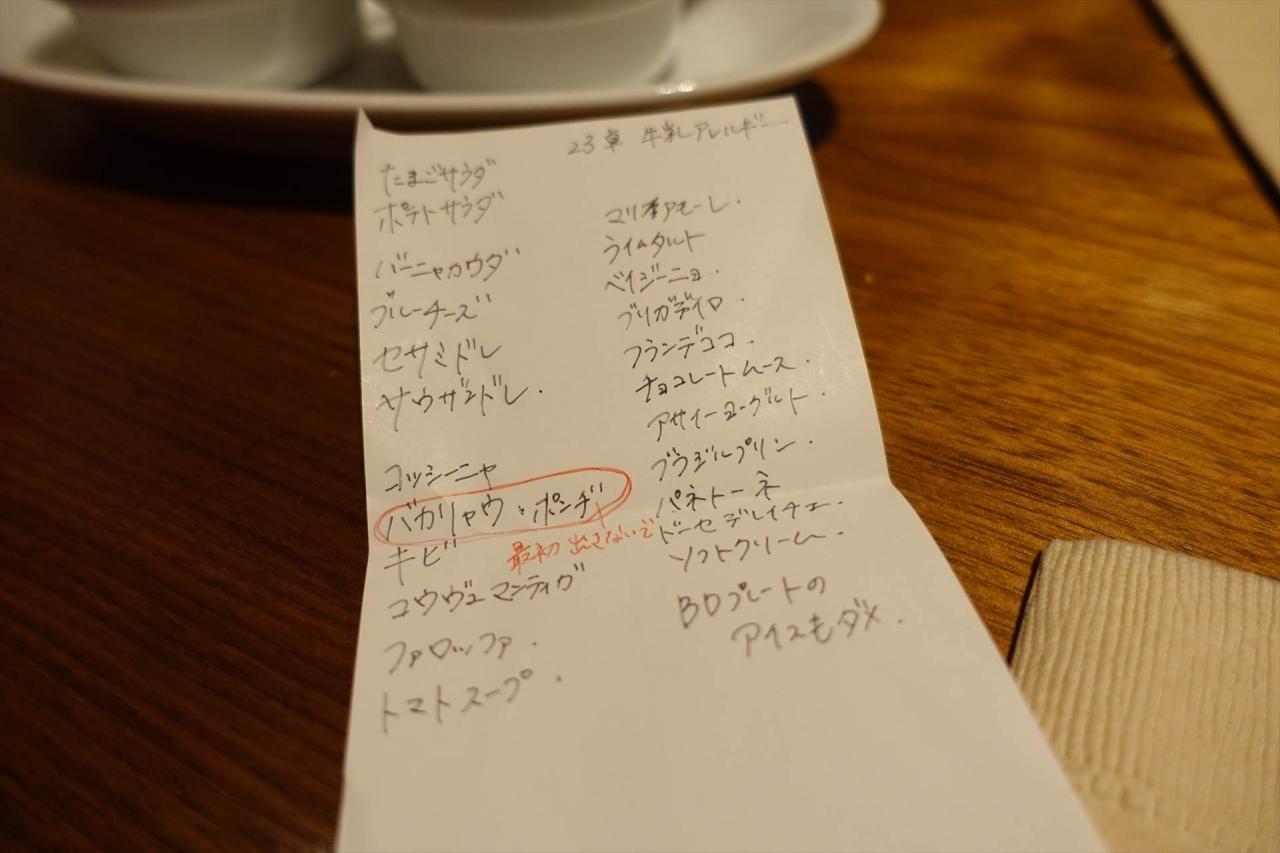 23卓 牛乳アレルギー
たまごサラダ
ポテトサラダ
バーニャカウダ
ブルーチーズ
セサミドレ
サウザンドレ.
コッシーニャ
バカリャウとポンデ
最初 出さないで
キビ
コウヴュマンティガ
ファロッファ.
トマトスープ.
マリ李アモーレ.
ライムタルト
ベイジーニョ.
ブリガデイロ.
フランデココ.
チョコレートムース.
アサイーヨーグルト.
ブラジルプリン.
パネトーネ
ドーセデレイチェ.
ソフトクリーム.
BDプレートの
アイスもダメ.